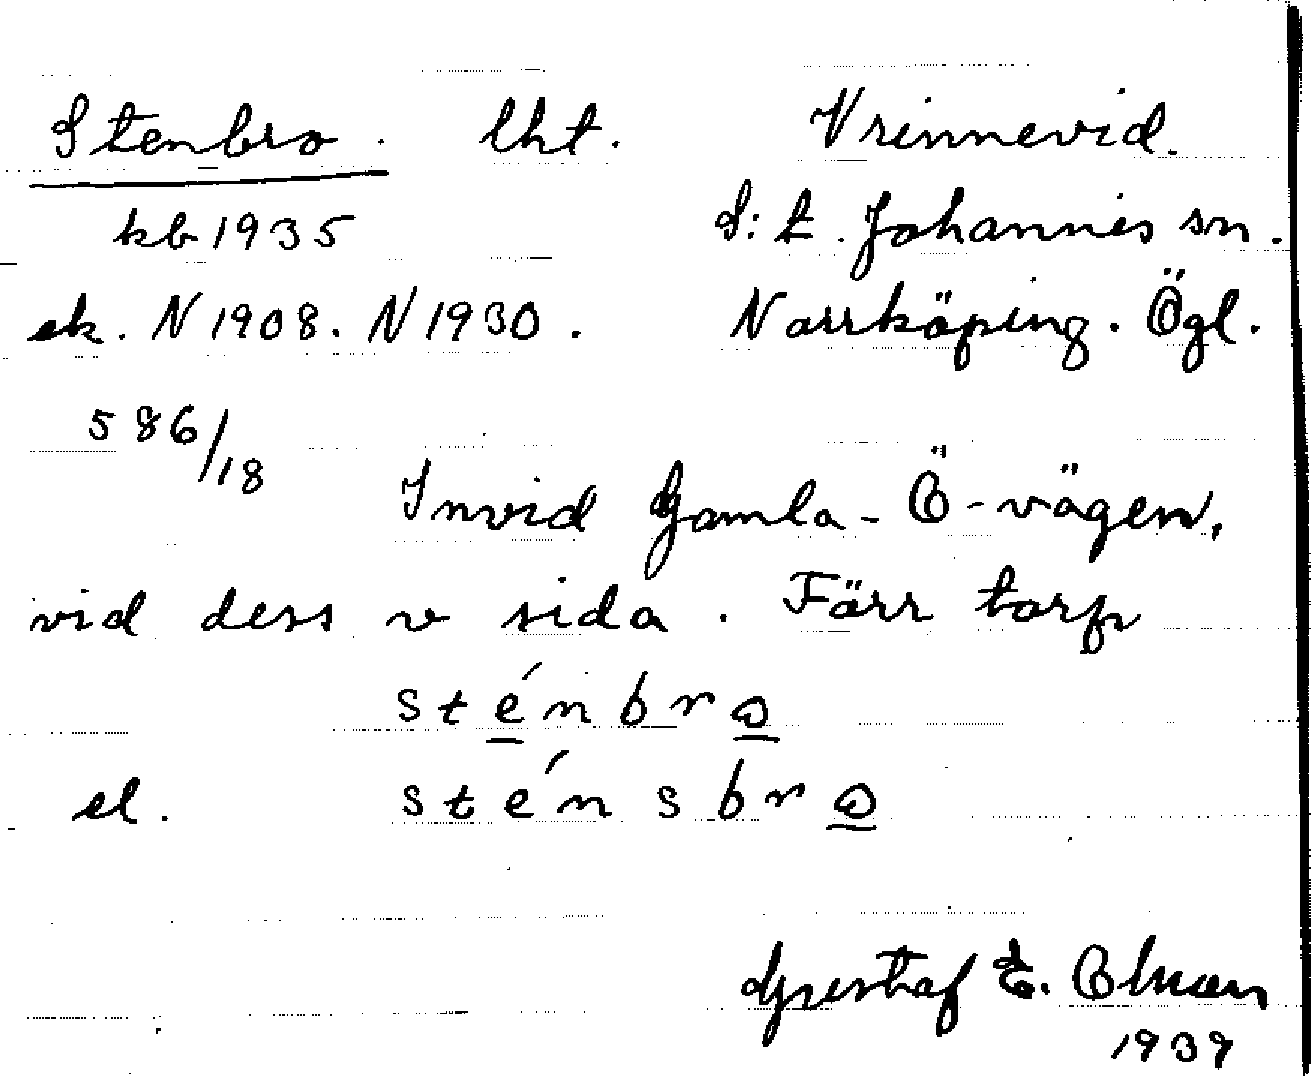 Stenbro. lht. Vrinnevid.
kb 1935 S:t. Johannes sn.
ek. N 1908. N 1930. Norrköping. Ögl.
586/18
Invid Gamla-Ö-vägen,
vid dess v sida. Förr torp
sténbro
el. sténsbro
Gustaf E.
1939